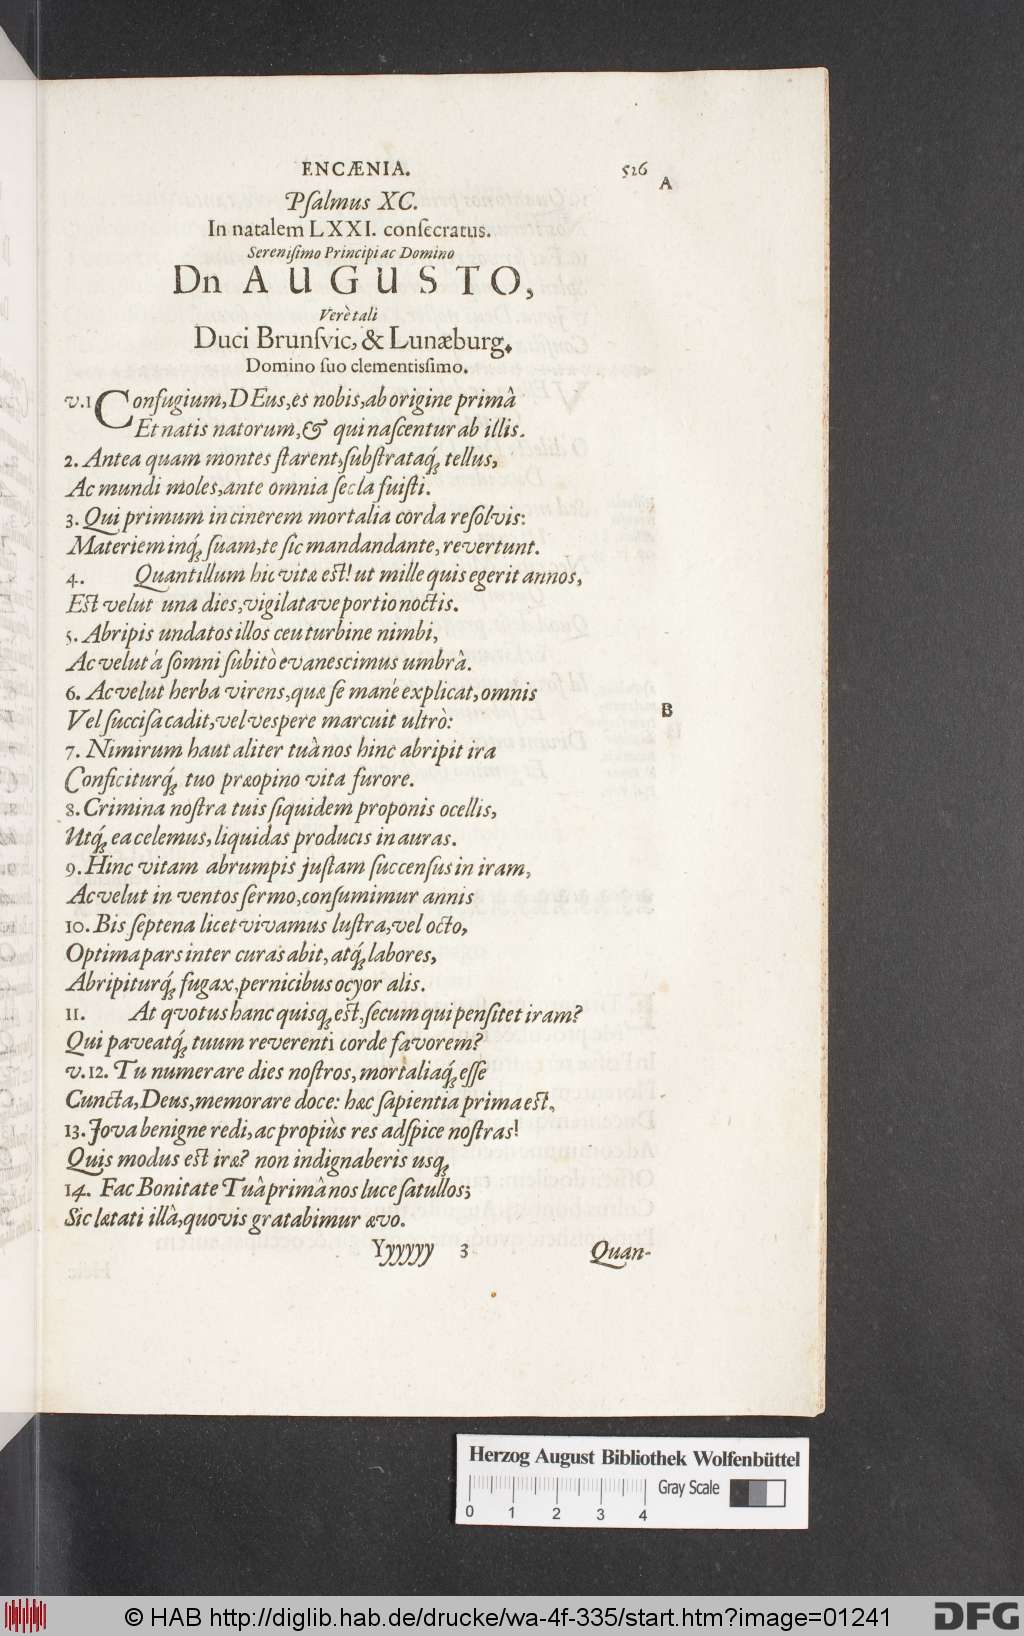 ENCÆNIA. 526
A
Psalmus XC.
In natalem LXXI. consecratus.
Serenißimo Principi ac Domino
Dn AUGUSTO,
Verè tali
Duci Brunsvic, & Lunæburg.
Domino suo clementissimo.
v.1 Confugium, DEus, es nobis, ab origine primâ
Et natis natorum, & qui nascentur ab illis.
2. Antea quam montes starent, substrataq́; tellus,
Ac mundi moles, ante omnia secla fuisti.
3. Qui primum in cinerem mortalia corda resolvis:
Materiem inq́; suam, te sic mandandante, revertunt.
4. Quantillum hic vitæ est! ut mille quis egerit annos,
Est velut una dies, vigilatave portio noctis.
5. Abripis undatos illos ceu turbine nimbi,
Ac velut à somni subitò evanescimus umbrâ.
6. Ac velut herba virens, quæ se manè explicat, omnis
B
Vel succisa cadit, vel vespere marcuit ultrò:
7. Nimirum haut aliter tuà nos hinc abripit ira
Conficiturq́; tuo præopino vita furore.
8. Crimina nostra tuis siquidem proponis ocellis,
Utq́; ea celemus, liquidas producis in auras.
9. Hinc vitam abrumpis justam succensus in iram,
Ac velut in ventos sermo, consumimur annis
10. Bis septena licet vivamus lustra, vel octo,
Optima pars inter curas abit, atq́; labores,
Abripiturq́; fugax, pernicibus ocyor alis.
11. At qvotus hanc quisq; est, secum qui pensitet iram?
Qui paveatq́; tuum reverenti corde favorem?
v.12. Tu numerare dies nostros, mortaliaq́; esse
Cuncta, Deus, memorare doce: hæc sapientia prima est,
13. Jova benigne redi, ac propiùs res adspice nostras!
Quis modus est iræ? non indignaberis usq;
14. Fac Bonitate Tuâ primâ nos luce satullos;
Sic lætati illà, quovis gratabimur ævo.
Yyyyyy 3 Quan-
Herzog August Bibliothek Wolfenbüttel
Gray Scale
0 1 2 3 4
© HAB http://diglib.hab.de/drucke/wa-4f-335/start.htm?image=01241
DFG